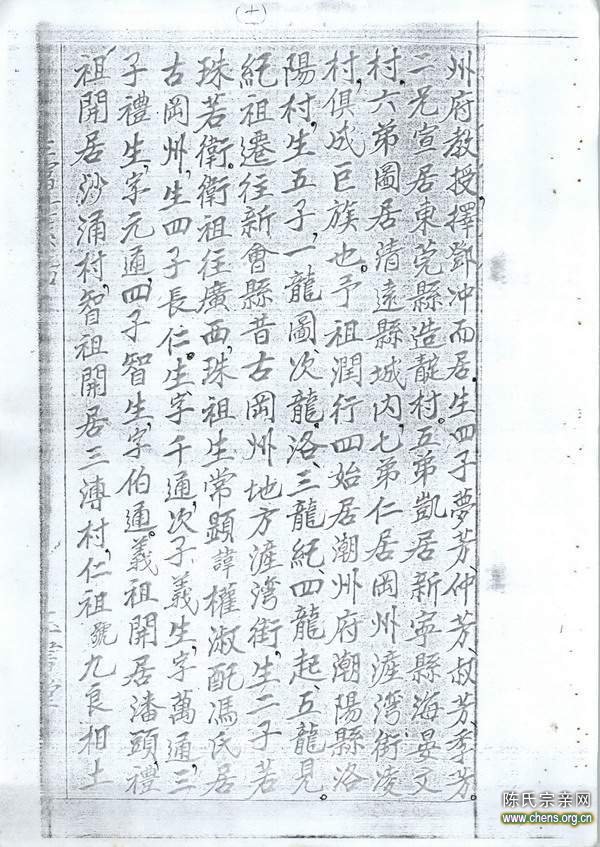 (十)
州府教授擇鄧冲而居。生四子夢芳、仲芳、叔芳、季芳。
二兄宣居東莞縣造靛村。五弟凱居新寧縣海晏文
村。六弟圖居清遠縣城內，七弟仁居岡州涯灣街凌
村，俱成巨族也。予祖潤行四始居潮州府潮陽縣洛
陽村，生五子，一龍圖、次龍洛、三龍紀四龍起、五龍見。
紀祖遷往新會縣昔古岡州地方涯灣街，生二子若
珠若衛。衛祖往廣西，珠祖生常顕諱權淑配馮氏居
古岡州，生四子長仁。生字千通，次子義生，字萬通，三
子禮生，字元通，四子智生，字伯通。義祖開居潘頭，禮
祖開居沙涌村，智祖開居三溥村，仁祖號九良相土
陈氏宗亲网
www.chens.org.cn